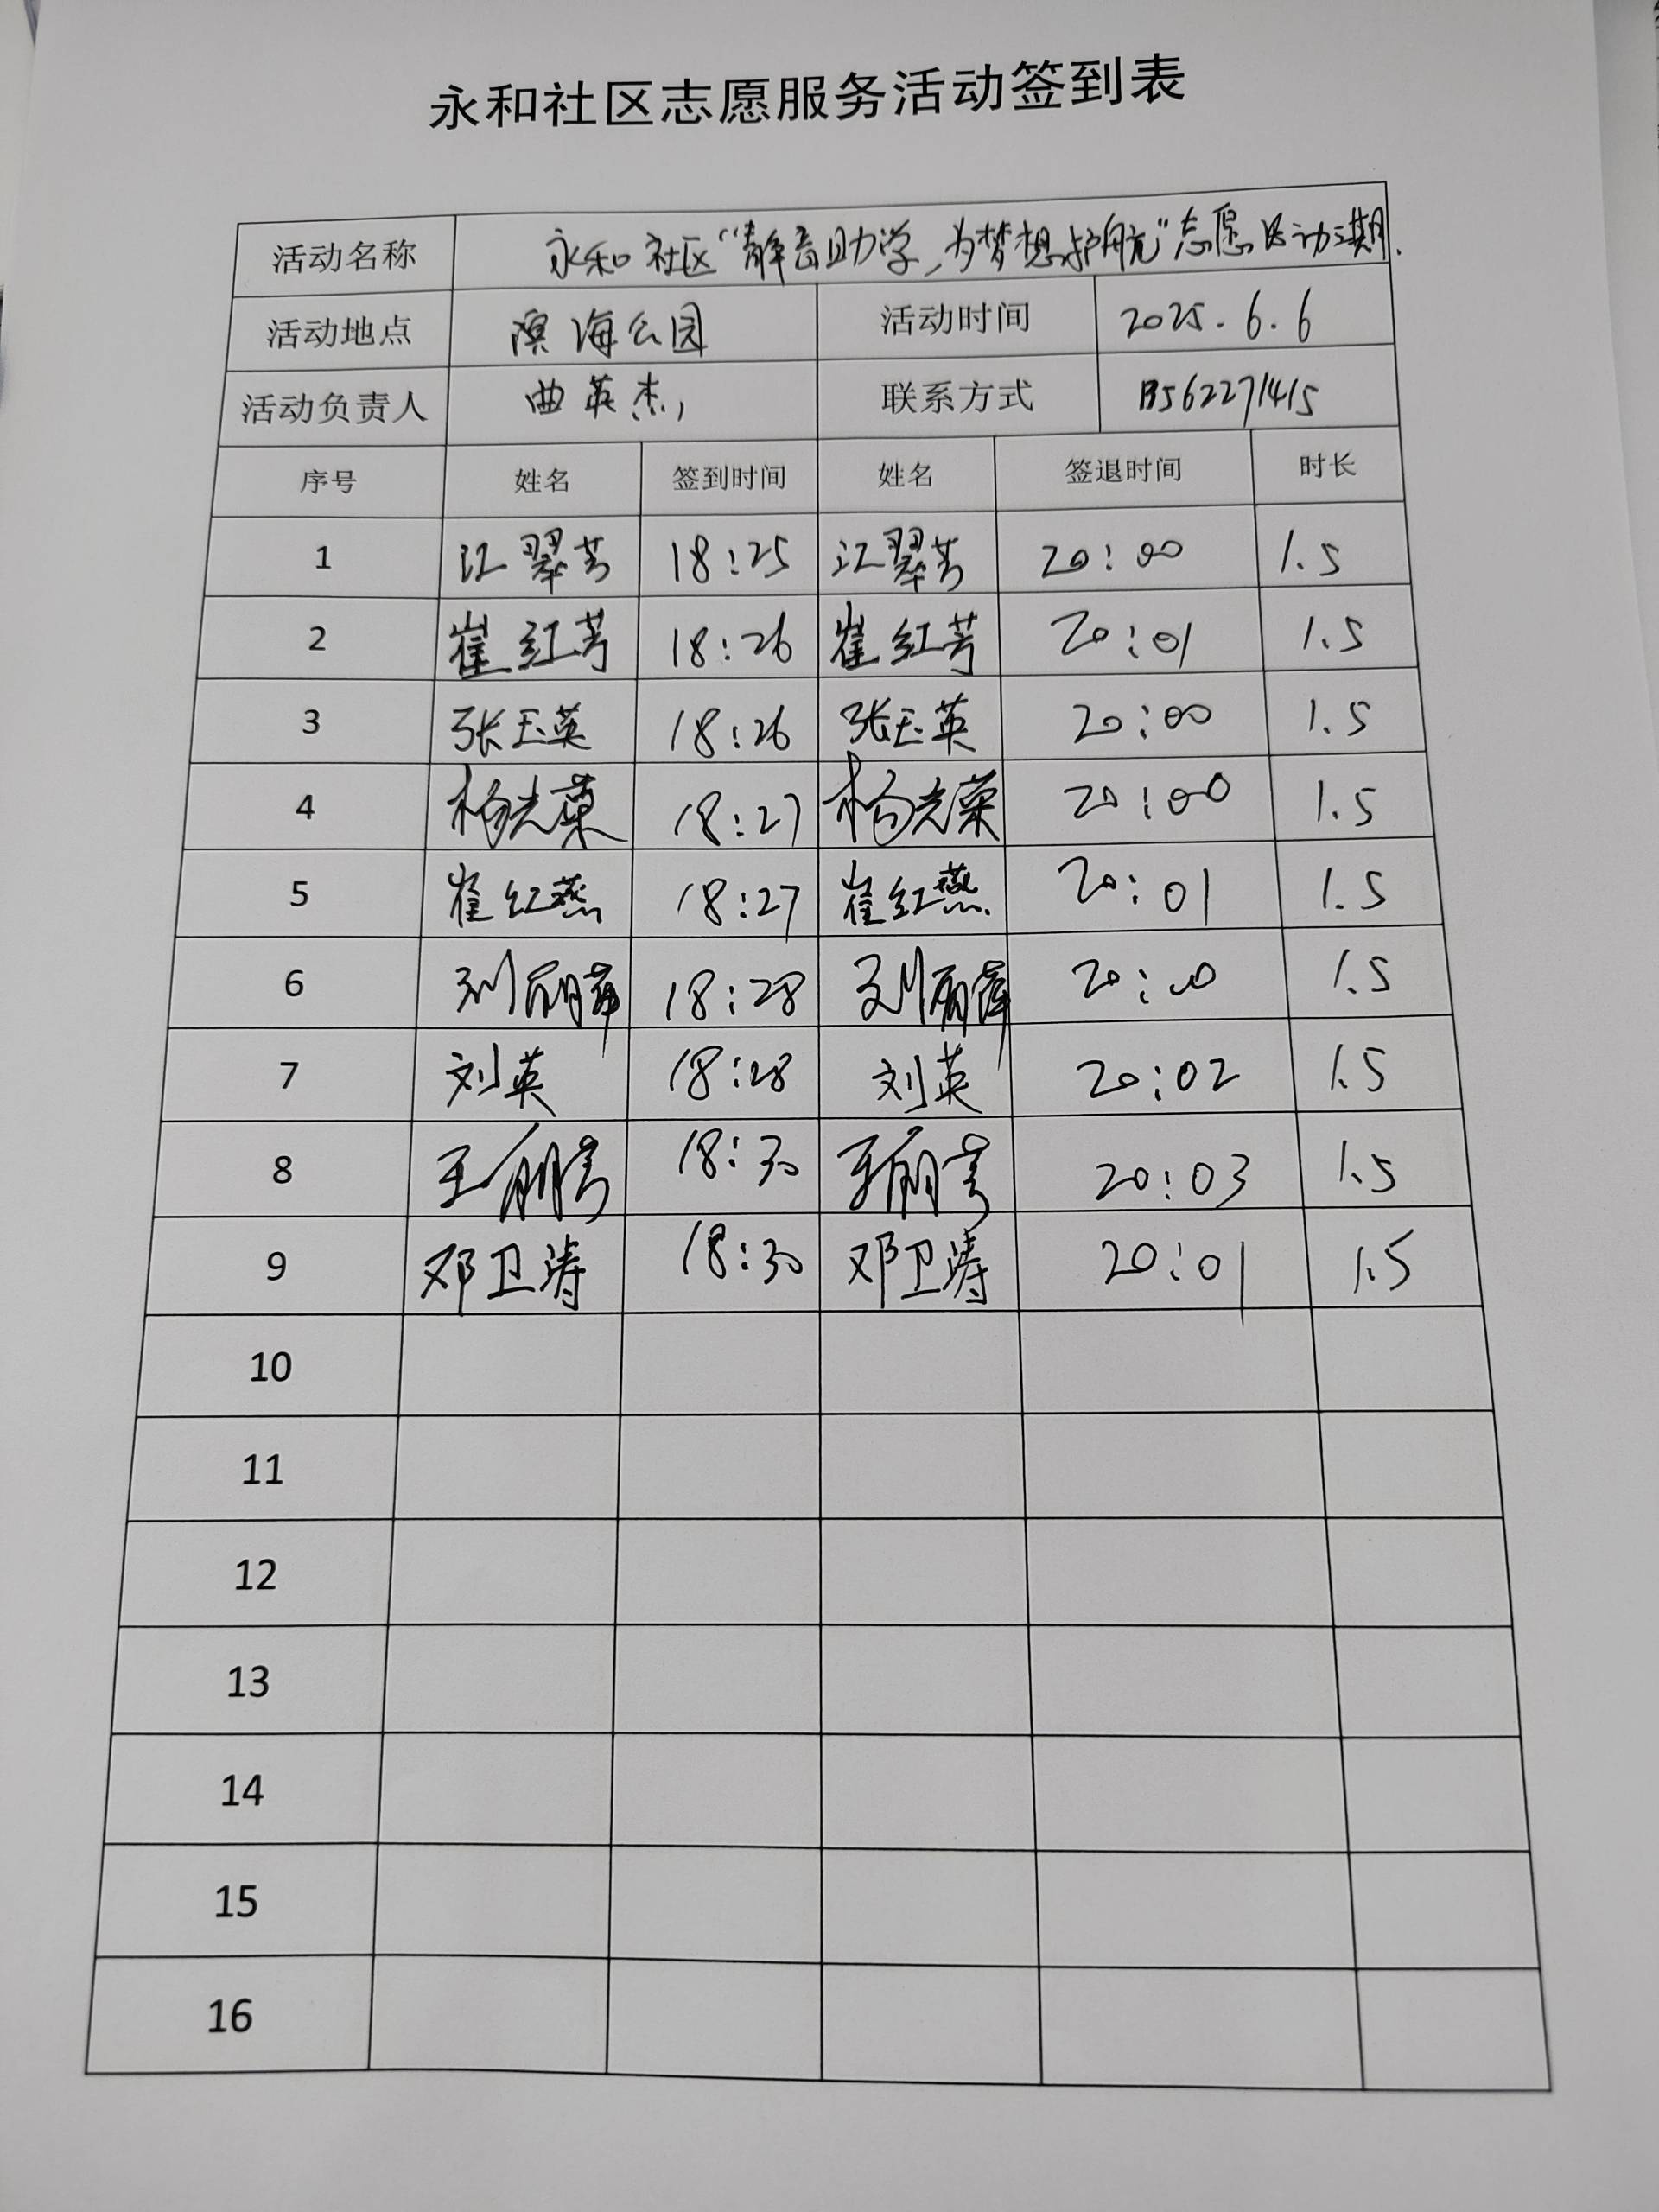 永和社区志愿服务活动签到表
活动名称 永和社区“静音助学,为梦想护航”志愿活动三期.
活动地点 滨海公园 活动时间 2025.6.6
活动负责人 曲英杰 联系方式 13562271415
序号 姓名 签到时间 姓名 签退时间 时长
1 江翠芳 18:25 江翠芳 20:00 1.5
2 崔红芳 18:26 崔红芳 20:01 1.5
3 张玉英 18:26 张玉英 20:00 1.5
4 杨光荣 18:27 杨光荣 20:00 1.5
5 崔红燕 18:27 崔红燕 20:01 1.5
6 刘丽萍 18:28 刘丽萍 20:00 1.5
7 刘英 18:28 刘英 20:02 1.5
8 18:30 20:03 1.5
9 邓卫涛 18:30 邓卫涛 20:01 1.5
10
11
12
13
14
15
16